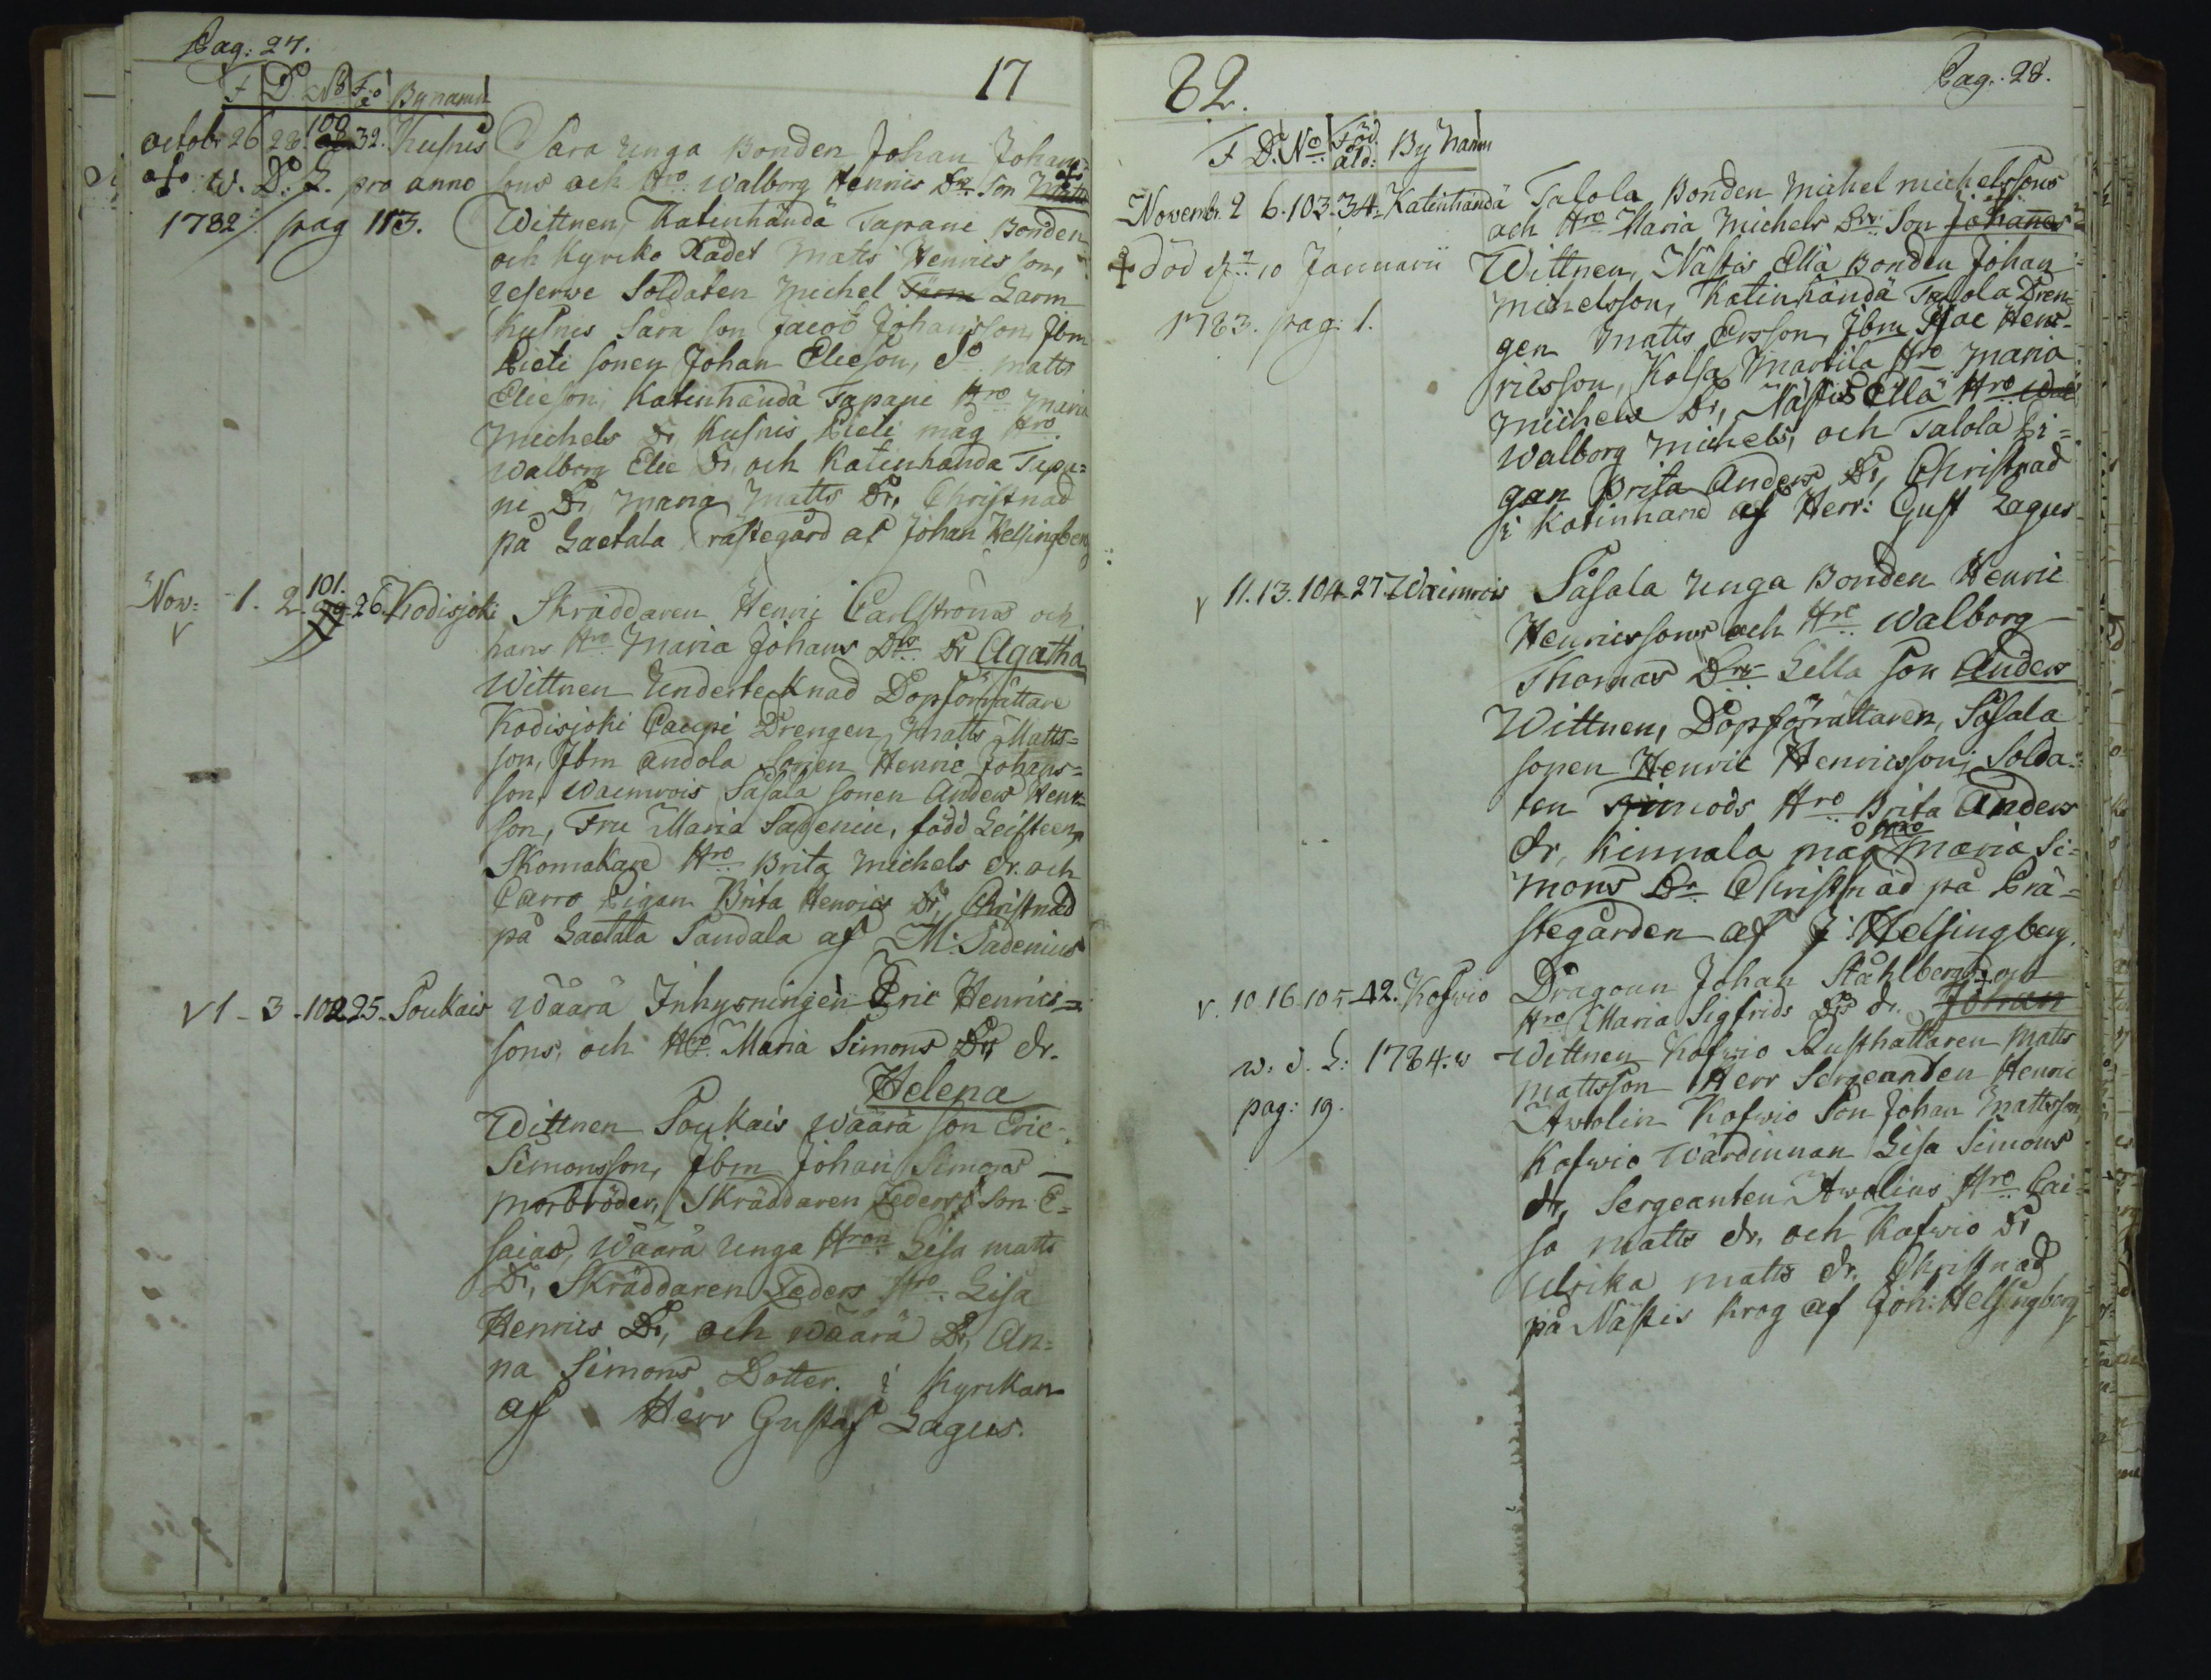 Pag: 27.
17
F D No F. a Bynamn
octobr 26 28. 100 32. Kusnis Sara unga Bonden Johan Johans=
w. D. L. pro anno sons och Hro Walborg Henrics Dr. Son Matts
1782 pag 113. Wittnen, Katinhändä Tapani Bonden
och Kyrcko Rådet Matts Henricsson,
reserwe Soldaten Michel Tärm Larm
Kusnis Sara son Jacob Johansson, Jbm
Pieti sonen Johan Elieson, do matts
Elieson, Katinhändä Tapani Hro maria
Michels Dr, Kusnis Pieti måg Hro
Walborg Elie Dr, och Katinhända Tapa=
ni Dr, maria Matts Dr, Christnad
på Laetala Prästegård af Johan Helsingberg
Nov: 1. 2. 101. 26. Kodisjoki Skräddaren Henric Carlströms och
v hans Hro Maria Johans Drs Dr Agatha
Wittnen Undertecknad Dopförrättare
Kodisjoki Caupi Drengen Matts Matts=
son, Jbm andola Sonen Henric Johans=
son, Waimrois Sasala sonen Anders Henr=
son, Fru Maria Sadenia, född Leisteen,
Skomakare Hro Brita Michels dr. och
Carro Pigan Brita Henrics Dr, Christnad
på Laetala Sandala af M: Sadenius
v 1 - 3 - 102 25 - Soukais Wäärä Inhysningen Eric Henrics=
sons, och Hro. Maria Simons Drs dr.
Helena
Wittnen Soukais Wäärä son Eric
Simonsson, Jbm Johan Simons
morbröder, Skräddaren Feders son E=
saias, Wäärä unga Hron Lisa matts
Dr, Skräddaren Feders Hro. Lisa
Henrics Dr, och Wäärä Dr, An=
na Simons Dotter. i Kyrckan
af Herr Gustaf Lagus.
82.
Pag. 28.
F D. No Föd. åld: By Namn
Novembr. 2 6. 103. 34. Katinhändä Talola Bonden Michel michelssons
och Hro Maria Michels Drs Son Johannes
död d. 10 Januarii Wittnen, Nästis Ellä Bonden Johan
1783. pag: 1. Michelsson, Katinhändä Talola Dren=
gen Matts Ersson, Jbm Isac Hen=
ricsson, Kolsa Martila Hro Maria
Michels Dr, Nästis Ellä Hro Wal
Walborg Michels, och Talola Pi=
gan Brita Anders Dr, Christnad
i Katinhand af Herr: Gust Lagus
v 11. 13. 104. 27. Waimrois Sasala unga Bonden Henric
Henricssons och Hro Walborg
Thomas Drs Lilla son Anders
Wittnen, Dopförrättaren, Sasala
sonen Henric Henricsson, Solda=
ten Simods Hro Brita Anders
dr, Kinnala måg Hro Maria Si=
mons Dr Christnad på Prä=
stegården af J: Helsingberg.
v. 10. 16. 105. 42. Kofwio Dragoun Johan Ståhlbergs och
Hro Maria Sigfrids Drs dr. Johan
w. d. L: 1784. Wittnen Kofwio Rusthållaren Matts
pag: 19. Mattsson Herr Sergeanden Henric
Awolin Kofwio Son Johan Mattsson,
Kofwio Wärdinnan Lisa Simons
dr, Sergeanten Awolins Hro Cai=
sa Matts dr. och Kofwio Dr
Ulrika matts dr. Christnad
på Nästis Krog af Joh: Helsingberg